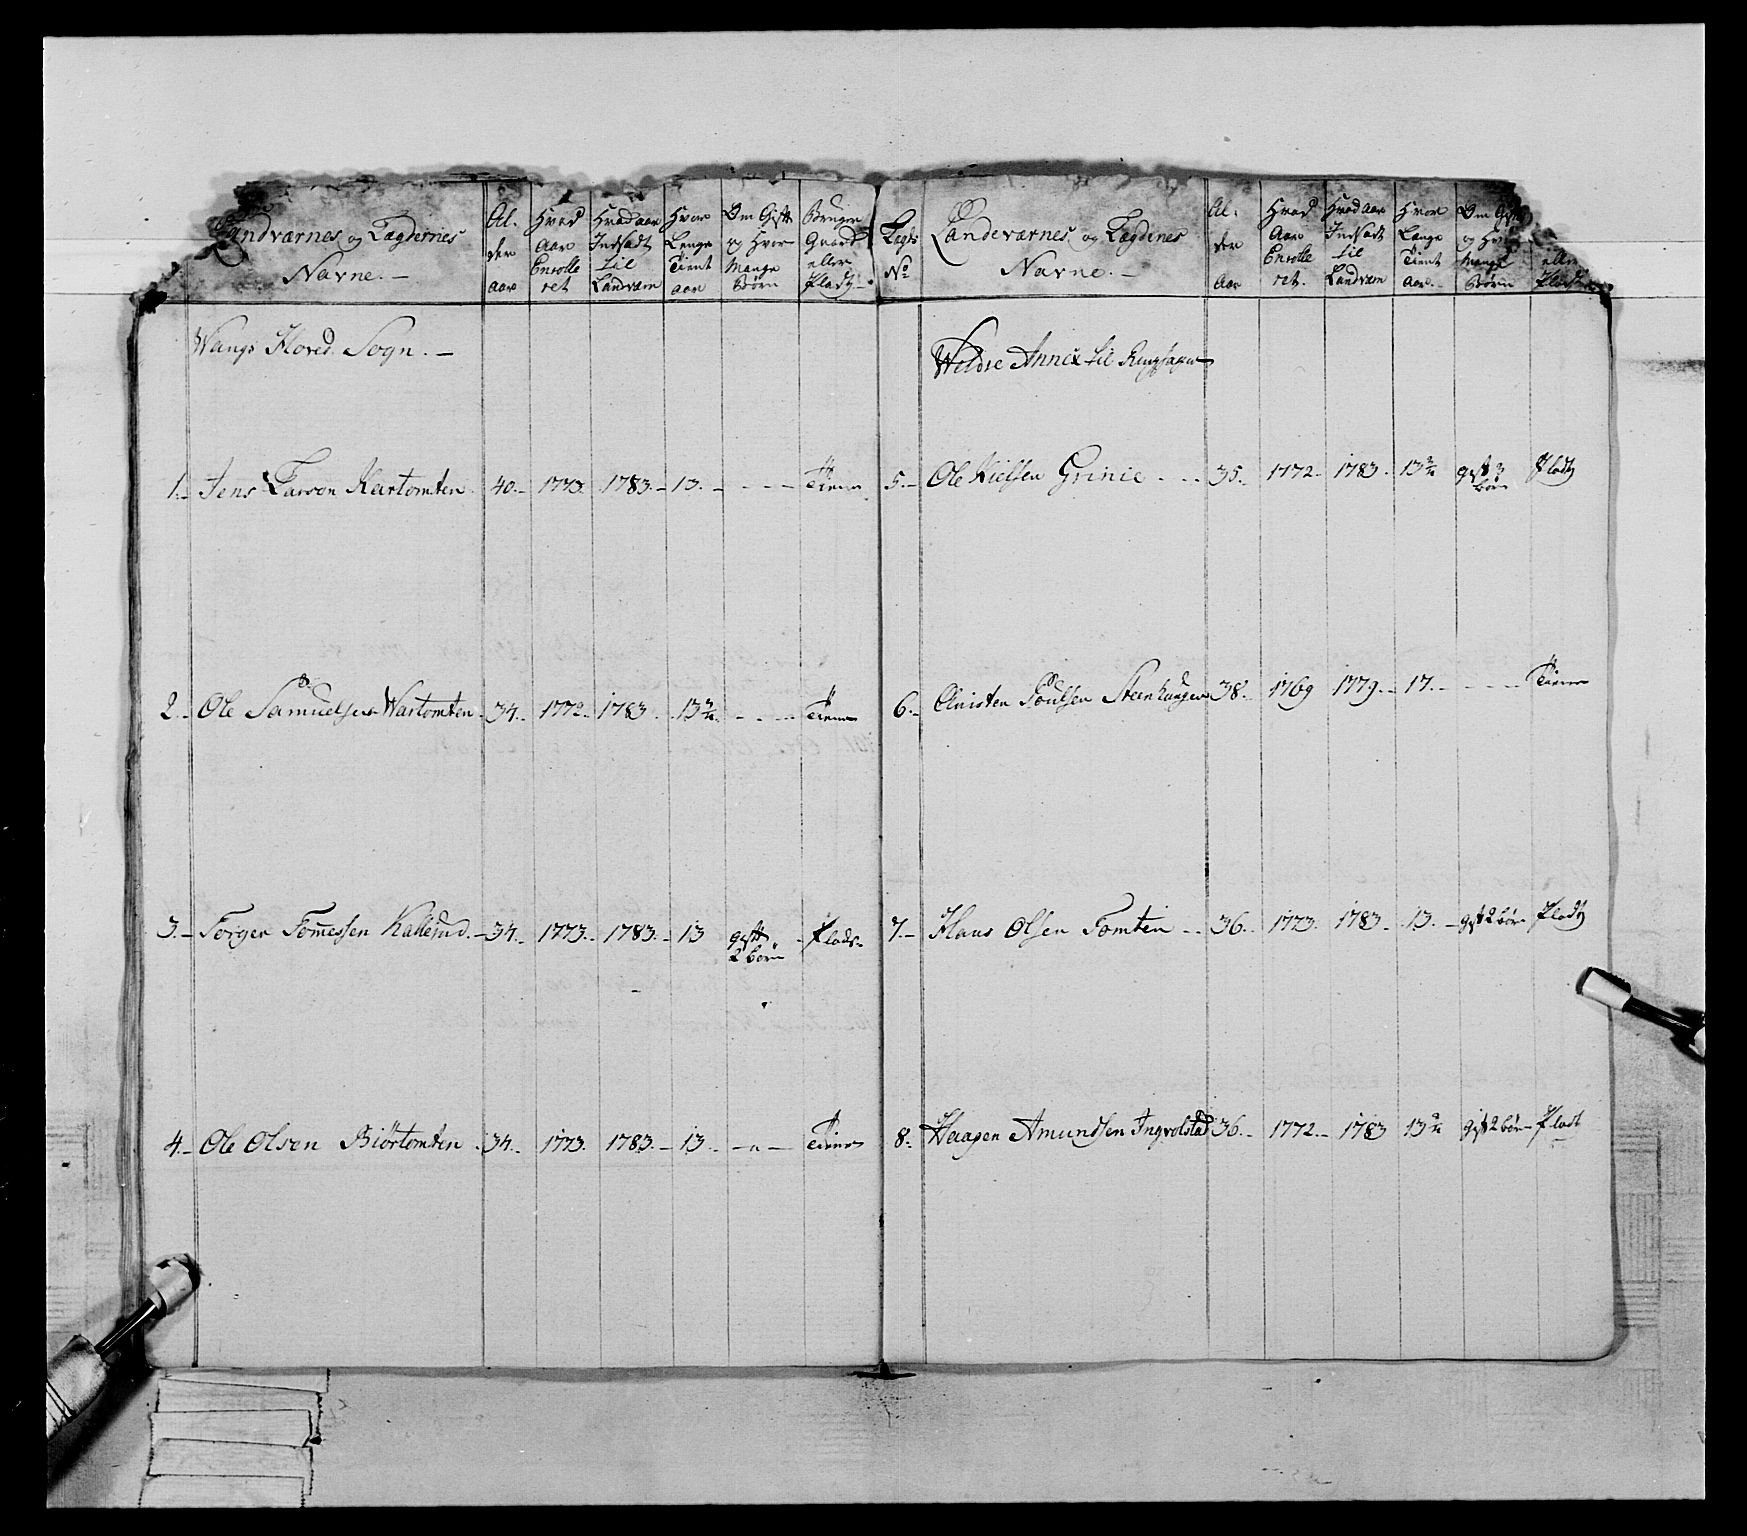 Landværnes og Lægdernes
Navne. -
Al-
der
aar
Hvad
Aar
Enrolle
ret
Hvad aar
Indsadt
til
Landværn
Hvor
Længe
Tient
aar
Om Gift
og Hvor
Mange
Børn
Bruger
Gaard
eller
Plads
Wangs Hoved Sogn. -
1. Jens Larsen Kartomten 40. 1773. 1783. 13. - - - Tiener
2. Ole Samuelsen Wartomten 34. 1772. 1783. 13¾ - - - Tiener
3. Torger Tomessen Kallerud 34. 1773. 1783. 13 gift 2 børn - Plads
4. Ole Olsen Biørtomten 34. 1773. 1783. 13. - " - Tiener
Lægds
No
Landeværnes og Lægdenes
Navne. -
Al-
der
Aar
Hvad
Aar
Enrolle
ret.
Hvad Aar
Indsadt
til
Landværn
Hvor
Længe
Tient
aar.
Om Gift
og Hvor
Mange
Børn
eller
Plads
Weldre Annex til Ringsager
5. Ole Nielsen Grinie 35. 1772. 1783. 13¾ gift 3 børn Plads
6. Christen Poulsen Steenhaugen 38. 1769 1779. 17. - - - Tiener
7. Hans Olsen Tomten 36. 1773. 1783. 13. gift 2 børn Plads
8. Haagen Amundsen Ingvolstad 36. 1772. 1783 13¾ gift 2 børn Plads